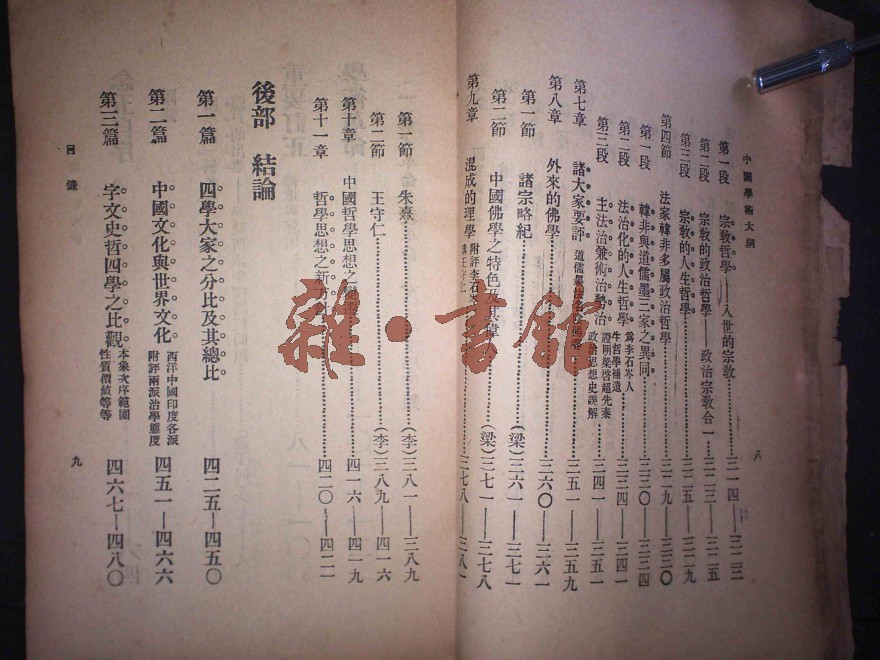 中國學術大綱
八
第一段 宗敎哲學——入世的宗敎……三一四——三二三
第二段 宗敎的政治哲學——政治宗敎合一……三二三——三二五
第三段 宗敎的人生哲學……三二五——三二九
第四節 法家韓非多屬政治哲學……三二九——三三〇
第一段 韓非與道儒墨三家之異同……三三〇——三三四
第二段 法治化的人生哲學 爲李石岑人生哲學補遺……三三四——三四一
第三段 主法治兼術治勢治 證明梁啓超先秦政治思想史誤解……三四一——三五一
第七章 諸大家要評 道儒墨法……三五一——三五九
第八章 外來的佛學……三六〇——三六一
第一節 諸宗略紀……(梁)三六一——三七一
第二節 中國佛學之特色及……(梁)三七一——三七八
第九章 混成的理學 附評李石岑……三七八——三八一
第一節 朱熹……(李)三八一——三八九
第二節 王守仁……(李)三八九——四一六
第十章 中國哲學思想之……四一六——四一九
第十一章 哲學思想之新……四二〇——四二二
後部 結論
第一篇 四學大家之分比及其總比 四二五—四五〇
第二篇 中國文化與世界文化 西洋中國印度各派附評兩派治學態度 四五一—四六六
第三篇 字文史哲四學之比觀 本象次序範圍性質價値等等 四六七—四八〇
目錄
九
雜·書館